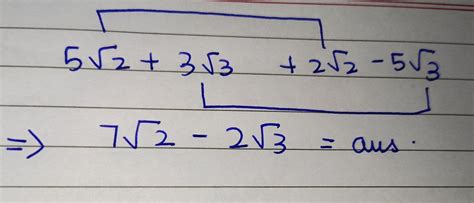 5√2 + 3√3 + 2√2 - 5√3
⇒ 7√2 - 2√3 = ans.